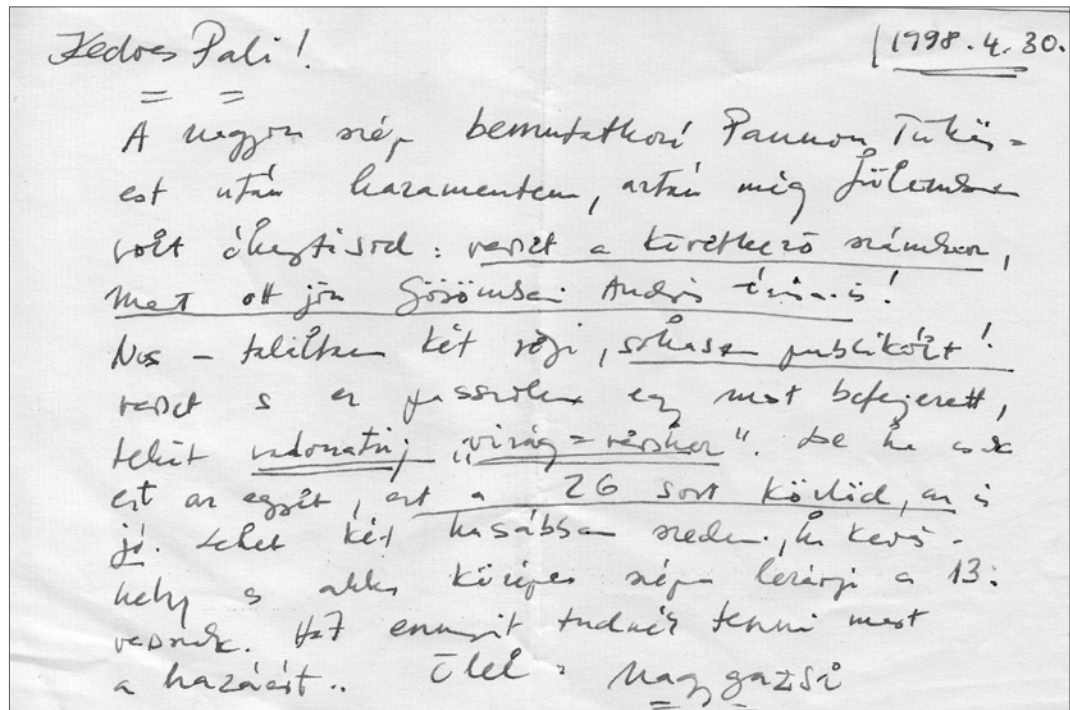 Kedves Pali! 1998.4.30.
A nagyon szép bemutatkozó Pannon Tükör=
est után hazamentem, aztán még fülemben
volt óhajtásod: verset a következő számban,
mert ott jön Gösömbei András írása is!
Nos – találtam két régi, sohasem publikált!
verset s ez passzolna egy most befejezett,
tehát vadonatúj „virág=vershez". De ha csak
ezt az egyet, ezt a 26 sort közlöd, az is
jó. Lehet két hasábban szedni, ha kevés
hely s akkor középen szépen lezárja a 13.
versszak. Hát ennyit tudnék tenni most
a hazáért.. Ölel: Nagy Gazsi